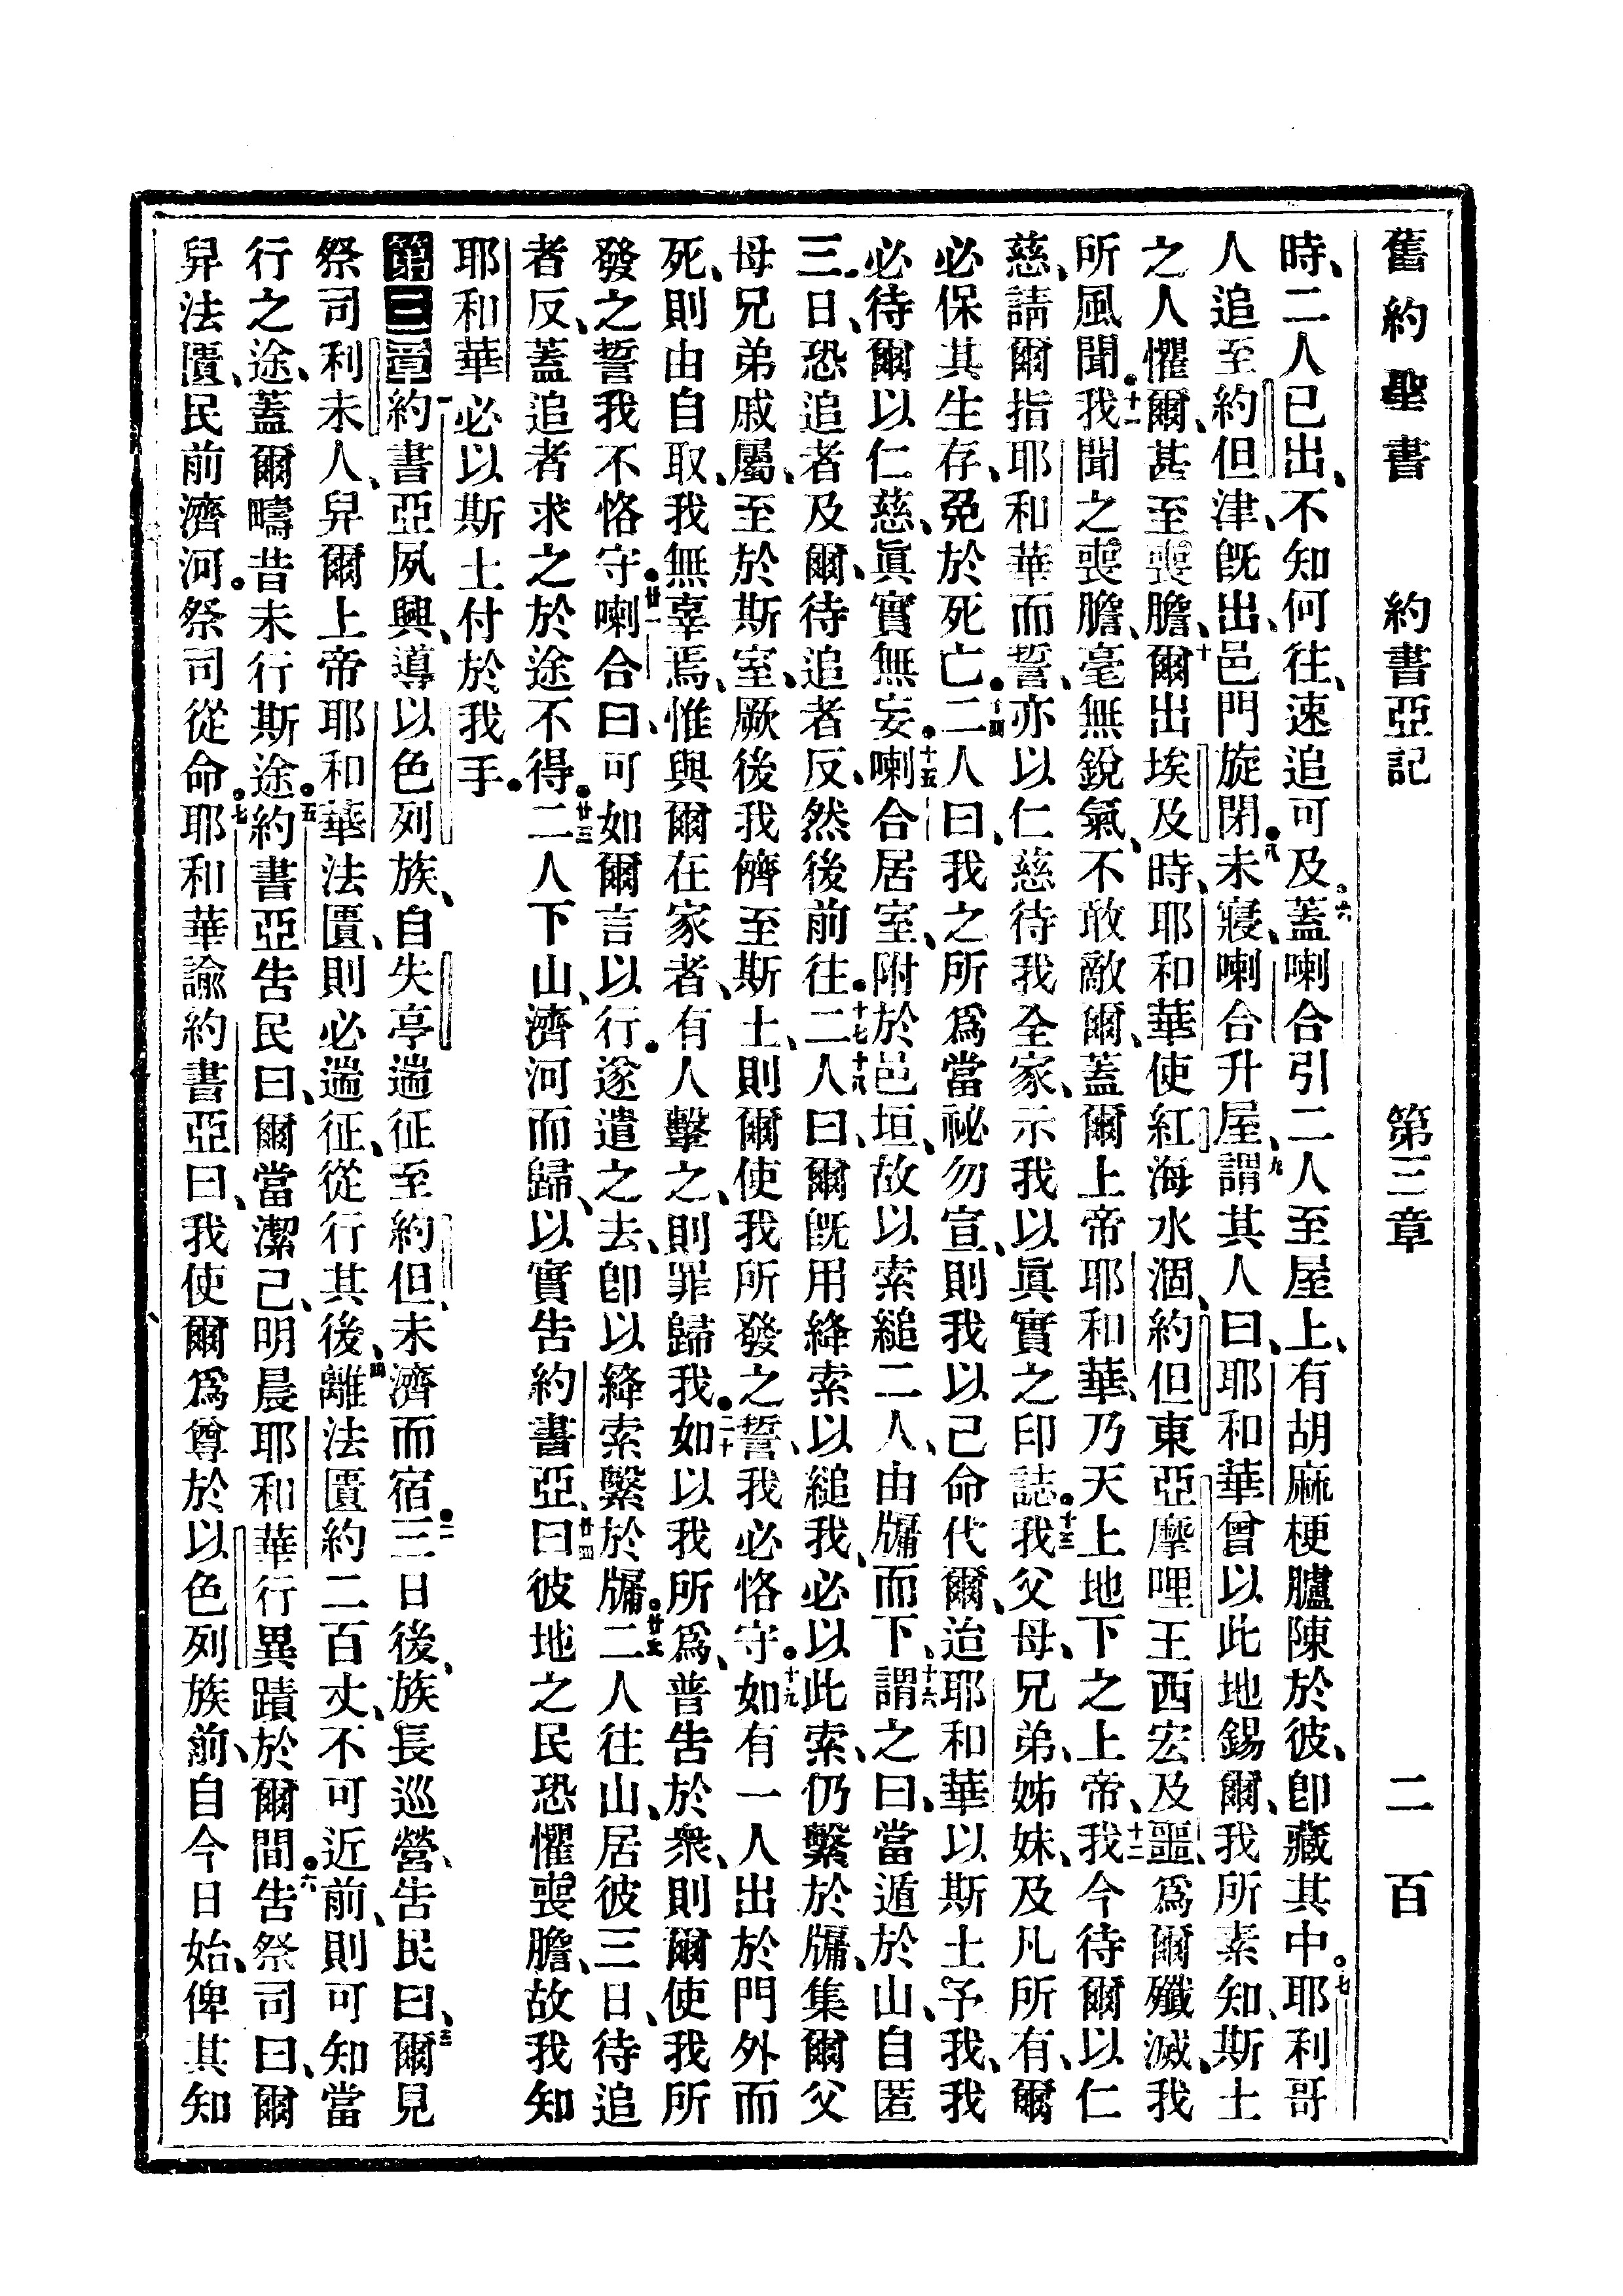 舊約聖書 約書亞記 第三章 二百
時、二人已出、不知何往、速追可及。六蓋喇合引二人至屋上、有胡麻梗臚陳於彼、卽藏其中。七耶利哥
人追至約但津、旣出、邑門旋閉。八未寢、喇合升屋、九謂其人曰、耶和華曾以此地錫爾、我所素知、斯土
之人懼爾、甚至喪膽、十爾出埃及時、耶和華使紅海水涸、約但東亞摩哩王西宏及噩、爲爾殲滅、我
所風聞。十一我聞之喪膽、毫無銳氣、不敢敵爾、蓋爾上帝耶和華、乃天上地下之上帝、十二我今待爾以仁
慈、請爾指耶和華而誓、亦以仁慈待我全家、示我以眞實之印誌。十三我父母、兄弟、姊妹、及凡所有、爾
必保其生存、免於死亡。十四二人曰、我之所爲當祕勿宣、則我以己命代爾、迨耶和華以斯土予我、我
必待爾以仁慈、眞實無妄。十五喇合居室、附於邑垣、故以索縋二人、由牖而下、十六謂之曰、當遁於山、自匿
三日、恐追者及爾、待追者反、然後前往。十七十八二人曰、爾旣用絳索以縋我、必以此索、仍繫於牖、集爾父
母兄弟戚屬、至於斯室、厥後我儕至斯土、則爾使我所發之誓、我必恪守。十九如有一人出於門外而
死、則由自取、我無辜焉、惟與爾在家者、有人擊之、則罪歸我。二十如以我所爲、普告於衆、則爾使我所
發之誓我不恪守。廿一喇合曰、可如爾言以行。遂遣之去、卽以絳索繫於牖。廿二二人往山、居彼三日、待追
者反、蓋追者求之於途不得。廿三二人下山、濟河而歸、以實告約書亞、廿四曰彼地之民恐懼喪膽、故我知
耶和華必以斯土付於我手。
第三章一約書亞夙興、導以色列族、自失亭遄征至約但、未濟而宿。二三日後、族長巡營、告民曰、三爾見
祭司利未人、舁爾上帝耶和華法匱、則必遄征、從行其後、四離法匱約二百丈、不可近前、則可知當
行之途、蓋爾疇昔未行斯途。五約書亞告民曰、爾當潔己、明晨耶和華行異蹟於爾間。六告祭司曰、爾
舁法匱、民前濟河。祭司從命。七耶和華諭約書亞曰、我使爾爲尊於以色列族前、自今日始、俾其知